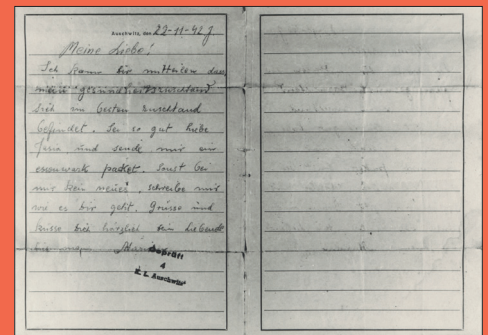 Auschwitz, den 22-11-42 J
Meine Liebe!
Ich kann dir mitteilen das
mein gesundheitszuschtand
sich im besten zuschtand
befindet. Sei so gut liebe
und sende mir ein
packet. Sonst bei
mir kein neues. schreibe mir
wie es dir geht. Grüsse und
küsse dich herzlich dein Liebende
Geprüft
4
K. L. Auschwitz